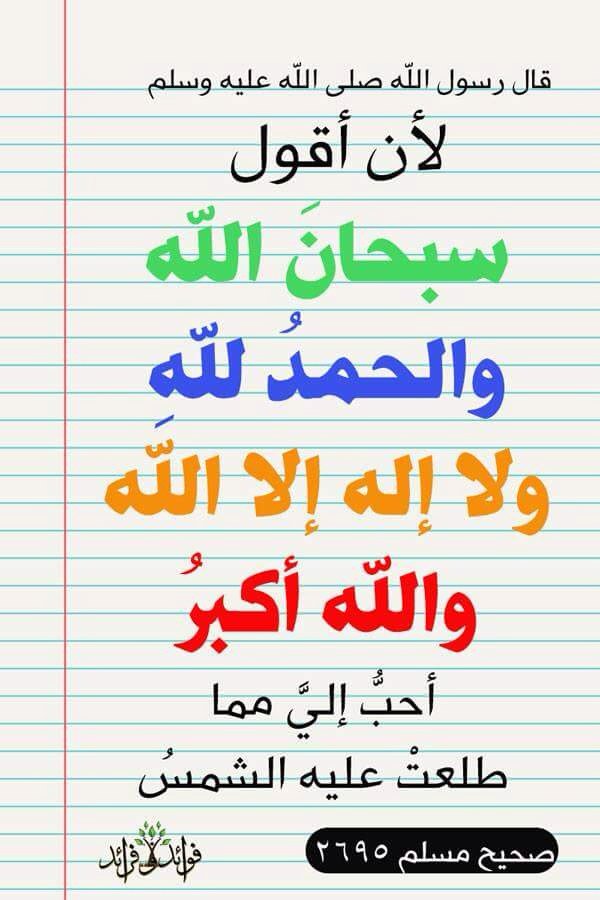 قال رسول الله صلى الله عليه وسلم
لأن أقول
سبحانَ الله
والحمدُ للهِ
ولا إله إلا الله
والله أكبرُ
أحبُّ إليَّ مما
طلعتْ عليه الشمسُ
صحيح مسلم ٢٦٩٥
فوائد وفرائد